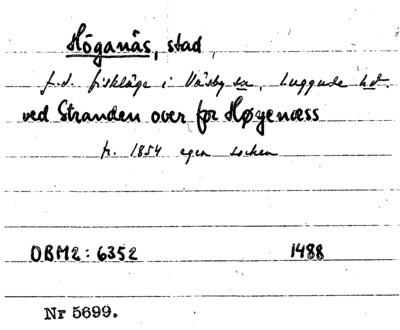 Höganäs, stad
f.d. fiskläge i Väsby sn, Luggude hd.
ved Stranden over for Høgenæss
fr. 1854 egen socken
OBM2: 6352 1488
Nr 5699.